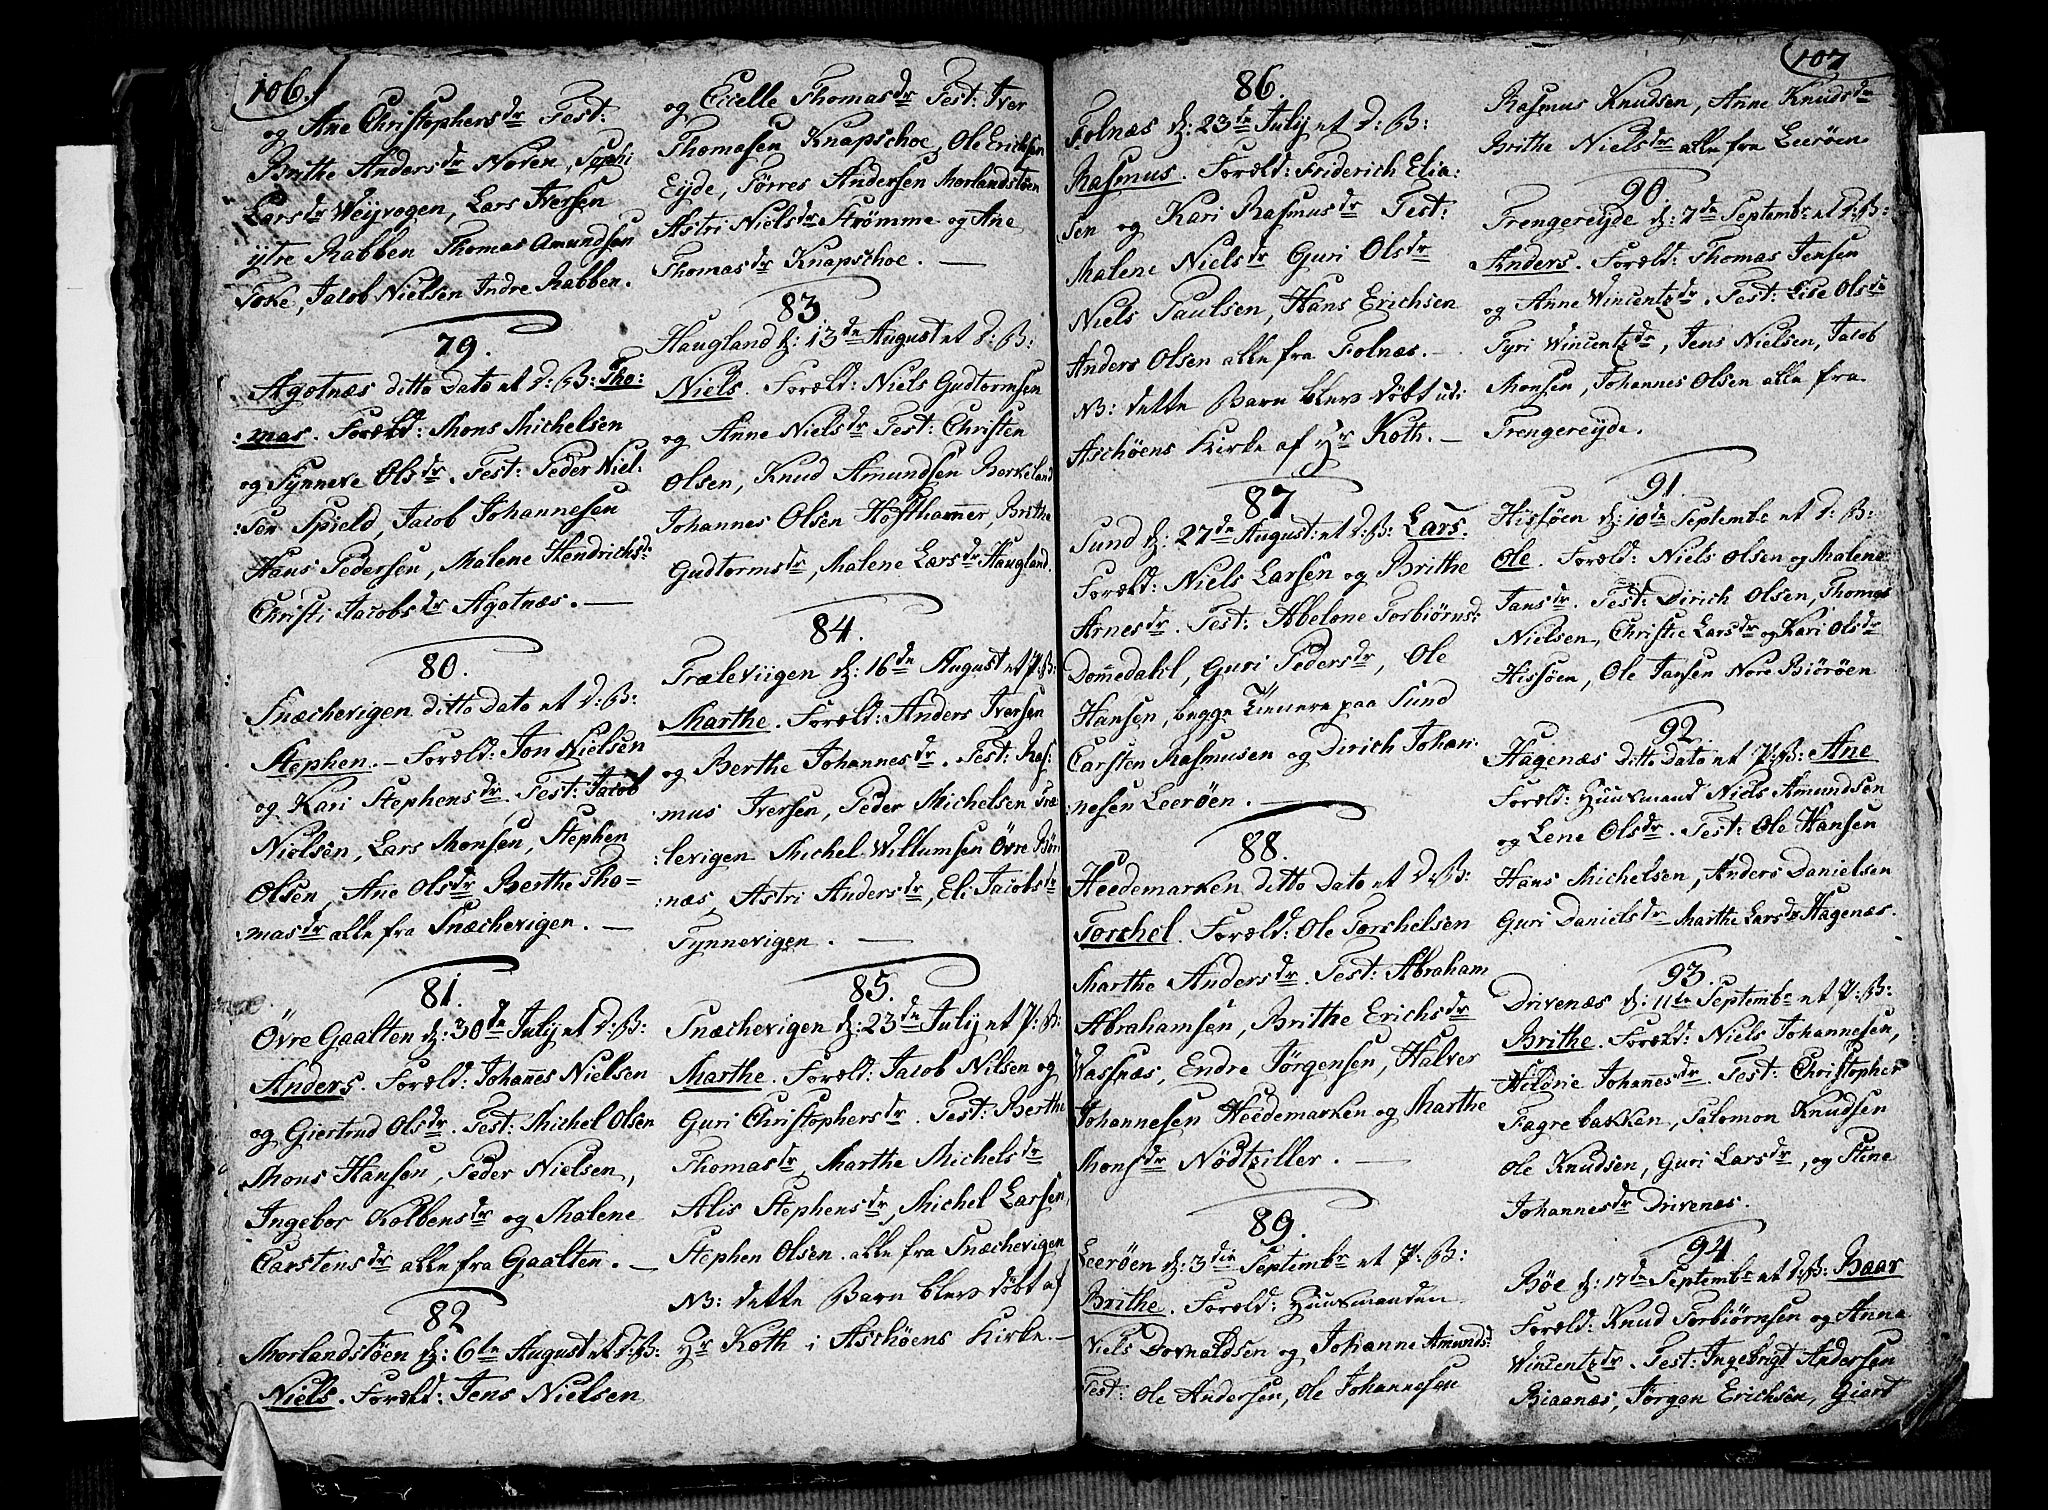 106.
og Ane Christophers dr Test:
Brithe Anders dr Noren, Sophi
Lars dr Weivogen, Lars Iversen
ytre Rabben Thomas Amundsen
Foke, Jacob Nielsen Indre Rabben.
79.
Agotnæs ditto Dato et D: B: Tho:
:mas. Foræld: Mons Michelsen
og Synneve Ols dr. Test: Peder Niel:
:sen Spield, Jacob Johannesen
Hans Pedersen, Malene Hendrichsd:
Christi Jacobs dr Agotnæs. —
80.
Snæchevigen ditto Dato et D: B:
Stephen. — Foræld: Jon Nielsen
og Kari Stephens dr. Test: Jacob
Nielsen, Lars Monsen, Stephen
Olsen, Ane Ols dr Berthe Tho=
mas dr alle fra Snæchevigen. —
81.
Övre Gaalten d: 30 de Julij et D: B:
Anders. Foræld: Johannes Nielsen
og Giertrud Ols dr. Test: Michel Olsen
Mons Hansen, Peder Nielsen,
Ingebor Kolbens dr og Malene
Carstens dr alle fra Gaalten. —
82
Morlandstøen d: 6te August et D: B:
Niels. Foræld: Jens Nielsen
og Cicelle Thomas dr Test: Iver
Thomasen Knapschoe, Ole Erichsen
Eijde, Tørres Andersen Morlandstøen
Astri Niels dr Strömme og Ane
Thomas dr Knapschoe. —
83
Haugland d: 13 de August et D: B:
Niels. Foræld: Niels Gudtormsen
og Anne Niels dr Test: Christen
Olsen, Knud Amundsen Berkeland
Johannes Olsen Hofsthammer, Brithe
Gudtorms dr, Malene Lars dr Haugland.
84.
Træleviigen d: 16 de August et P: B:
Marthe. Foræld: Anders Iversen
og Berthe Johannes dr. Test: Ras:
mus Iversen, Peder Michelsen Træ
:levigen Michel Willumsen Övre Bör
:næs, Astri Anders dr, Eli Jacobs dr
Tynnevigen. —
85.
Snæchevigen d: 23 de Julij et P: B:
Marthe. Foræld: Jacob Nilsen og
Guri Christophers dr. Test: Berthe
Thomas dr, Marthe Michels dr
Alis Stephens dr, Michel Larsen,
Stephen Olsen alle fra Snæchevigen
NB: dette Barn blev døbt af
Hr Koth i Aschöens Kirke. —
107
86.
Tolnæs d: 23 de Julij et D: B:
Rasmus. Foræld: Friderich Elia:
sen og Kari Rasmus dr Test:
Malene Niels dr Guri Ols dr
Niels Paulsen, Hans Erichsen
Anders Olsen alle fra Tolnæs. —
NB: dette Barn blev døbt udi
Aschöens Kirke af Hr Koth. —
87
Sund d: 27 de August: et D: B: Lars.
Foræld: Niels Larsen og Brithe
Arnes dr. Test: Abelone Torbiørnsd:
Domedahl, Guri Peders dr, Ole
Hansen, begge tienere paa Sund
Carsten Rasmusen og Dirich Johan:
:nesen Leeröen. —
88.
Heedemarken ditto Dato et D: B:
Torchel. Foræld: Ole Torchelsen
Marthe Anders dr. Test: Abraham
Abrahamsen, Brithe Erichs dr
Wasnæs, Endre Jørgensen, Halver
Johannesen Heedemarken og Marthe
Mons dr Nödtviller. —
89.
Leeröen d: 3die Septembr et P: B:
Brithe. Foræld: Huusmanden
Niels Dovnaldsen og Johanne Amundsd:
Test: Ole Andersen, Ole Johannesen
Rasmus Knudsen, Anne Knuds dr
Brithe Niels dr alle fra Leeröen
90
Trengereijde d: 7 de Septembr et D: B:
Anders. Foræld: Thomas Jensen
og Anne Wincentz dr. Test: Lise Ols dr
Fyri Wincentz dr, Jens Nielsen, Jacob
Monsen, Johannes Olsen alle fra
Trengereijde.
91
Hissöen d: 10 de Septembr et D: B:
Ole. Foræld: Niels Olsen og Malene
Jans dr. Test: Dirich Olsen, Thomas
Nielsen, Christie Lars dr og Kari Ols dr
Hissöen, Ole Jansen Nore Biöröen
92.
Hagenæs ditto Dato et P: B: Ane
Foræld: Huusmand Niels Amundsen
og Lene Ols dr. Test: Ole Hansen
Hans Michelsen, Anders Danielsen
Guri Daniels dr Marthe Lars dr Hagenæs.
93.
Drivenæs d: 11te Septembr et P: B:
Brithe. Foræld: Niels Johannesen,
Hildrie Johannes dr. Test: Christopher
Fagrebakken, Salomon Knudsen
Ole Knudsen, Guri Lars dr, og Stine
Johannes dr Drivenæs.
94
Böe d: 17 de Septembr et D: B: Baar
Foræld: Knud Torbiörnsen og Anna
Wincentz dr. Test: Ingebrigt Andersen
Biaanæs, Jørgen Erichsen, Giert